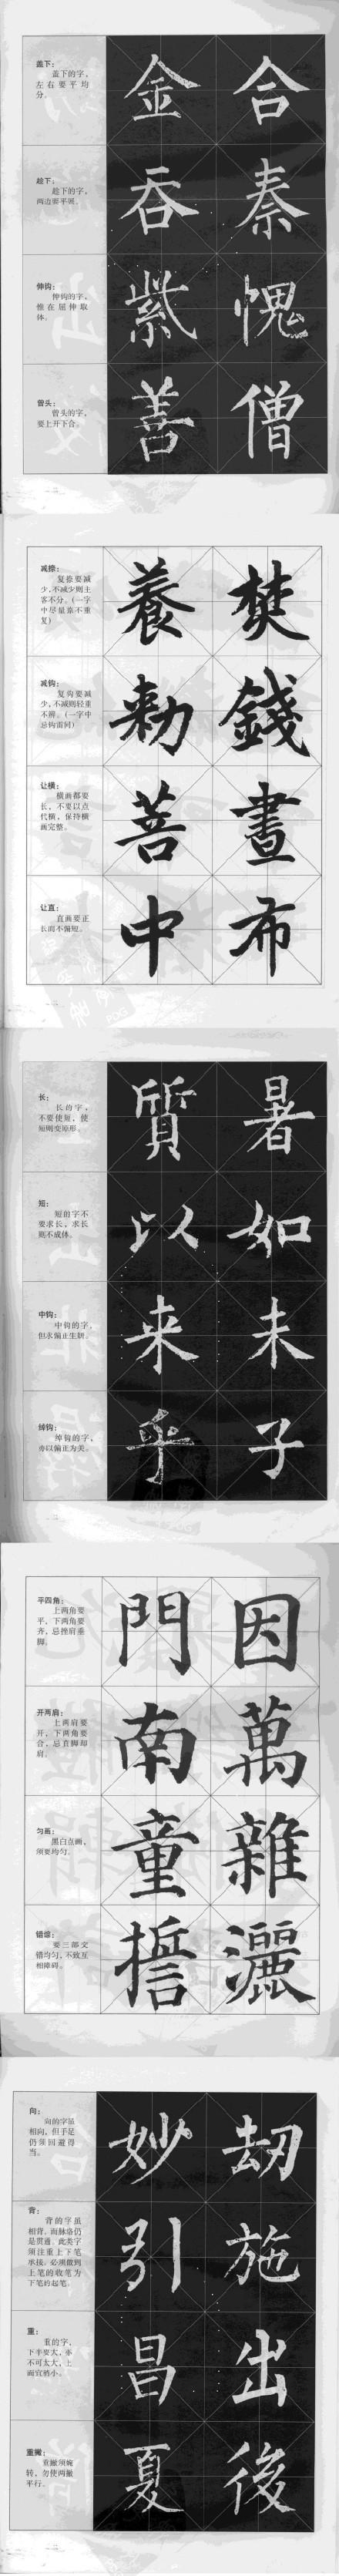 盖下：
盖下的字，
左右要平均
分。
金 合
趁下：
趁下的字，
两边要平展。
吞 秦
伸钩：
伸钩的字，
惟在屈伸取
体。
紫 愧
曾头：
曾头的字，
要上开下合。
善 僧
减捺：
复捺要减
少，不减少则主
客不分。（一字
中尽量捺不重
复）
養 焚
减钩：
复钩要减
少，不减则轻重
不辨。（一字中
忌钩雷同）
勑 錢
让横：
横画都要
长，不要以点
代横，保持横
画完整。
菩 畫
让直：
直画要正
长而不偏短。
中 布
长：
长的字，
不要使短，使
短则变原形。
質 暑
短：
短的字不
要求长，求长
则不成体。
以 如
中钩：
中钩的字，
但求偏正生朝。
来 未
绰钩：
绰钩的字，
亦以偏正为美。
乎 子
平四角：
上两角要
平，下两角要
齐，忌挫肩垂
脚。
門 因
开两肩：
上两肩要
开，下两角要
合，忌直脚却
肩。
南 萬
匀画：
黑白点画，
须要均匀。
童 雜
错综：
要三部交
错均匀，不致互
相障碍。
誓 灑
向：
向的字虽
相向，但手足
仍须回避得
当。
妙 刼
背：
背的字虽
相背，而脉络仍
是贯通。此类字
须注重上下笔
承接。必须做到
上笔的收笔为
下笔的起笔。
引 施
重：
重的字，
下半要大，亦
不可太大，上
面宜稍小。
昌 出
重撇：
重撇须婉
转，勿使两撇
平行。
夏 後